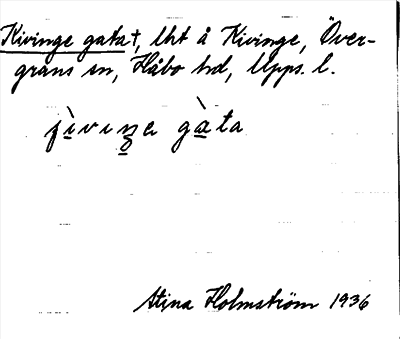 Kivinge gata†, lht å Kivinge, Över-
grans sn, Håbo hd, Upps. l.
Stina Holmström 1936